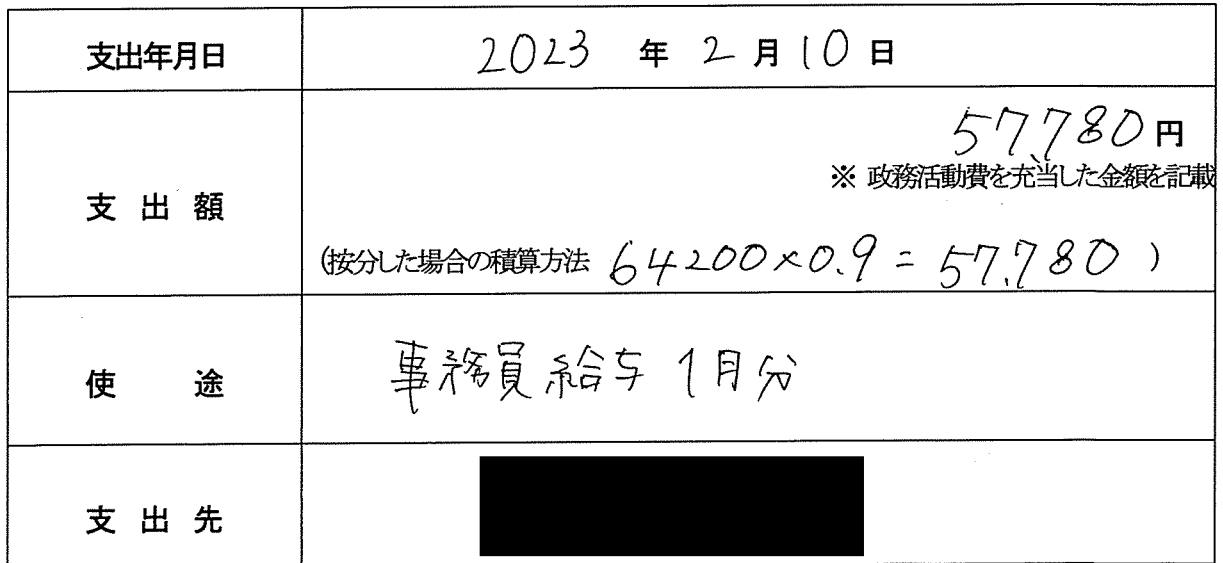 支出年月日 2023 年 2 月 10 日
57,780円
※ 政務活動費を充当した金額を記載
支 出 額
(按分した場合の積算方法 64200×0.9 = 57,780 )
使 途 事務員給与 1月分
支 出 先